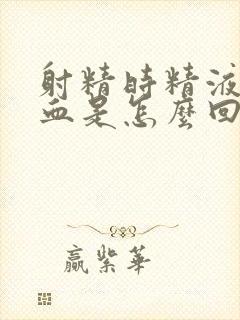 射精時精液
血是怎麼回
贏紫華